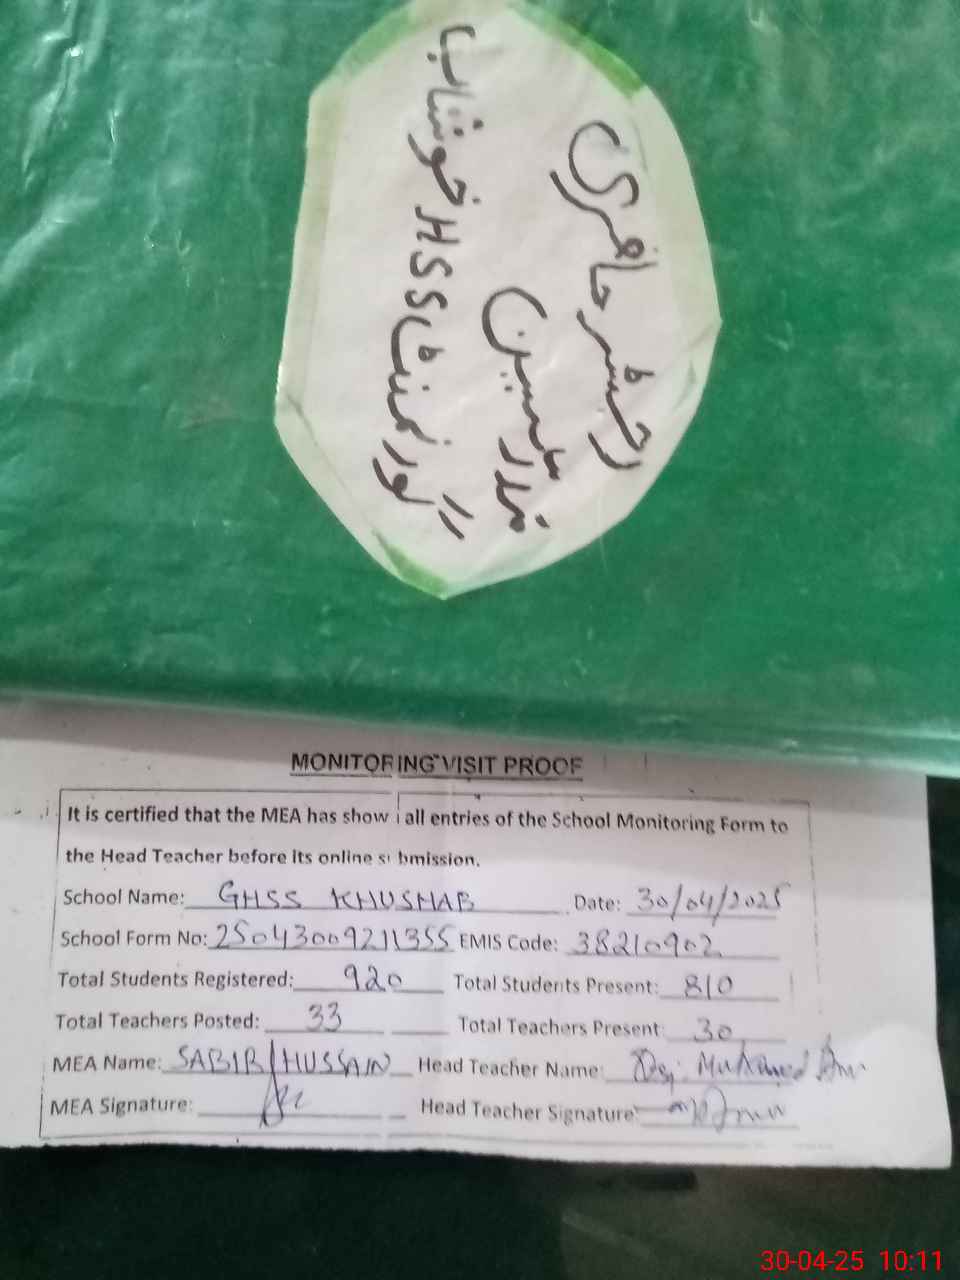 رجسٹر حاضری
مدرسین
گورنمنٹ HSS خوشاب
MONITORING VISIT PROOF
It is certified that the MEA has show all entries of the School Monitoring Form to
the Head Teacher before its online submission.
School Name: GHSS KHUSHAB Date: 30/04/2025
School Form No: 25043009211355 EMIS Code: 38210902
Total Students Registered: 920 Total Students Present: 810
Total Teachers Posted: 33 Total Teachers Present: 30
MEA Name: SABIR HUSSAIN Head Teacher Name: Muhamed
MEA Signature: Head Teacher Signature:
30-04-25 10:11